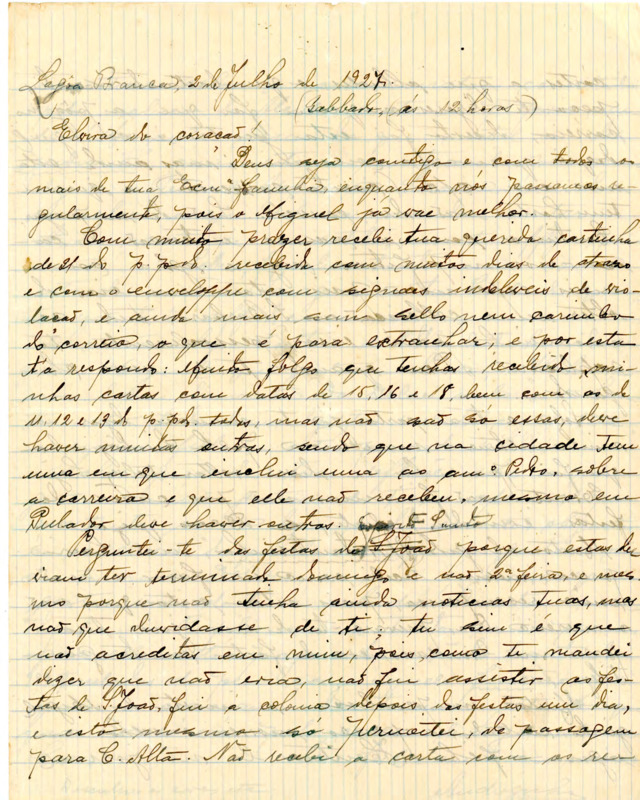 Lagoa Branca, 2 de Julho de 1927.
(Sabbado, (ás 12 horas)
Elvira do coração!
Deus seja comtigo e com todos o
mais de tua Ecmª familia, enquanto nós passamos re
gularmente, pois o Miguel já vae melhor.
Com muito prazer recebi tua querida cartinha
de 21 do p.pdº. recebida com muitos dias de atrazo
e com o enveloppe com signaes indeleveis de vio-
lação, e ainda mais sem sello nem carimbo
do correio, o que é para extranhar; e por esta
t'a respondo: Muito folgo que tenhas recebido mi-
nhas cartas com datas de 15, 16 e 18, bem com as de
11, 12 e 13 do p.pdº. todas, mas não são só essas, deve
haver muitas outras, sendo que na cidade tem
uma em que enclui uma ao amº. Pedro, sobre
a carreira e que elle não recebeu, mesmo em
Pulador deve haver outras. Espirito Santo
Perguntei-te das festas do S. João porque estas de
viam ter terminado Domingo e não 2ª feira, e mes
mo porque não tinha ainda noticias tuas, mas
não que duvidasse de ti; tu sim é que
não acreditas em mim, pois como te mandei
dizer que não iria, não fui assistir as fes-
tas de S. João, fui a colonia depois das festas um dia,
e isto mesmo só pernoitei, de passagem
para C. Alta. Não recebi a carta com os re